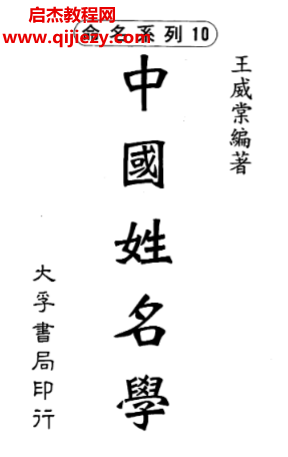 启杰教程网
www.qijiezy.com
命名系列10
王威棠編著
中國姓名學
大孚書局印行